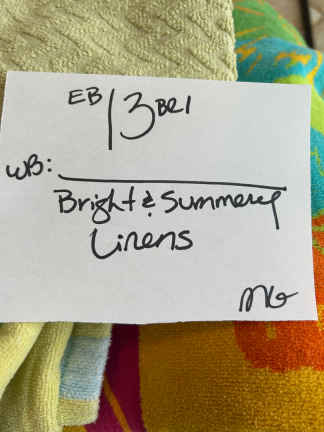 EB 13 BR1
WB:
Bright & Summery
Linens